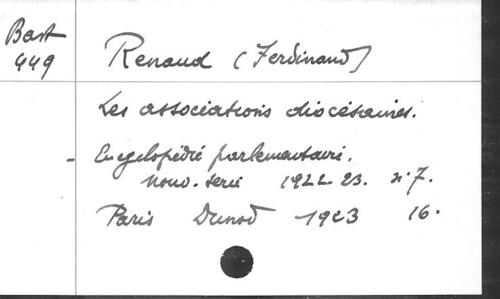 Bast
449
Renaud (Ferdinand)
Les associations diocésaines.
- Encyclopédie parlementaire.
nouv. serie 1922-23. n° 7.
Paris Dunod 1923 16.